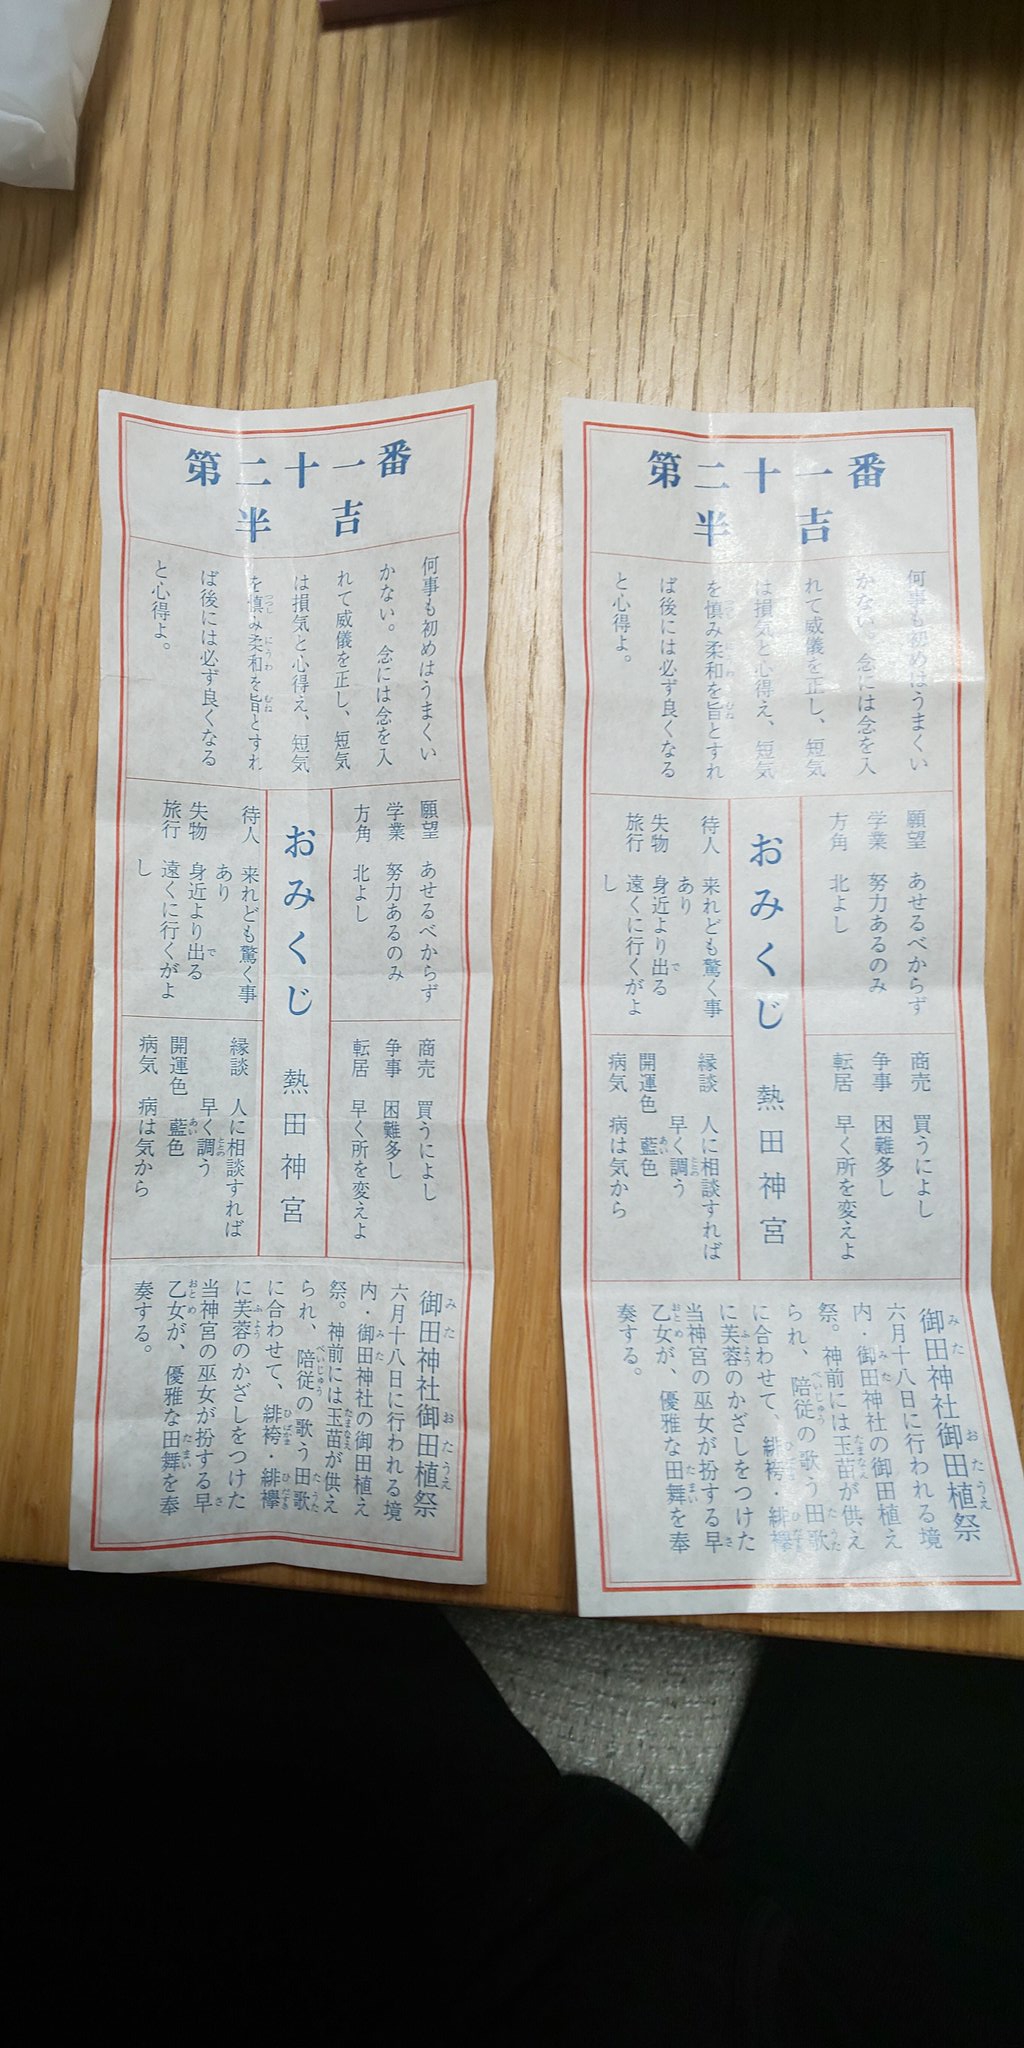 第二十一番
半吉
何事も初めはうまくい
かない。念には念を入
れて威儀を正し、短気
は損気と心得え、短気
を慎み柔和を旨とすれ
ば後には必ず良くなる
と心得よ。
願望 あせるべからず
学業 努力あるのみ
方角 北よし
商売 買うによし
争事 困難多し
転居 早く所を変えよ
おみくじ 熱田神宮
待人 来れども驚く事
あり
失物 身近より出る
旅行 遠くに行くがよ
し
縁談 人に相談すれば
早く調う
開運色 藍色
病気 病は気から
御田神社御田植祭
六月十八日に行われる境
内・御田神社の御田植え
祭。神前には玉苗が供え
られ、陪従の歌う田歌
に合わせて、緋袴・緋襷
に芙蓉のかざしをつけた
当神宮の巫女が扮する早
乙女が、優雅な田舞を奉
奏する。
第二十一番
半吉
何事も初めはうまくい
かない。念には念を入
れて威儀を正し、短気
は損気と心得え、短気
を慎み柔和を旨とすれ
ば後には必ず良くなる
と心得よ。
願望 あせるべからず
学業 努力あるのみ
方角 北よし
商売 買うによし
争事 困難多し
転居 早く所を変えよ
おみくじ 熱田神宮
待人 来れども驚く事
あり
失物 身近より出る
旅行 遠くに行くがよ
し
縁談 人に相談すれば
早く調う
開運色 藍色
病気 病は気から
御田神社御田植祭
六月十八日に行われる境
内・御田神社の御田植え
祭。神前には玉苗が供え
られ、陪従の歌う田歌
に合わせて、緋袴・緋襷
に芙蓉のかざしをつけた
当神宮の巫女が扮する早
乙女が、優雅な田舞を奉
奏する。